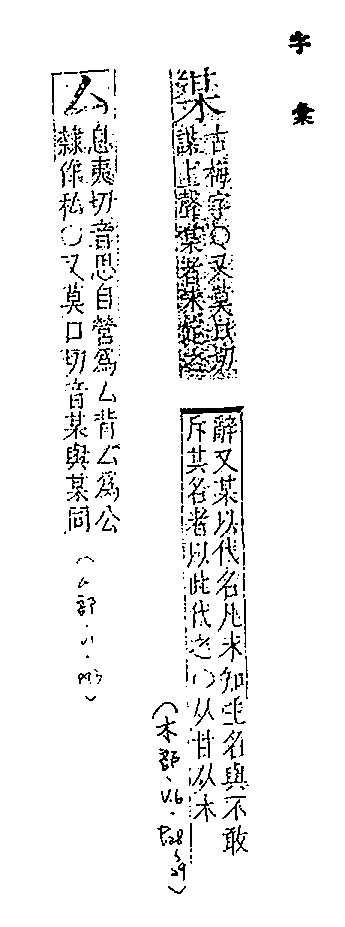 字彙
某
古梅字〇又莫後切
謀上聲某者未定之
辭又某以代名凡未知其名與不敢
斥其名者以此代之〇从甘从木
(木部、V.6、P.28~29)
厶
息夷切音思自營爲厶背厶爲公
隸作私〇又莫口切音某與某同